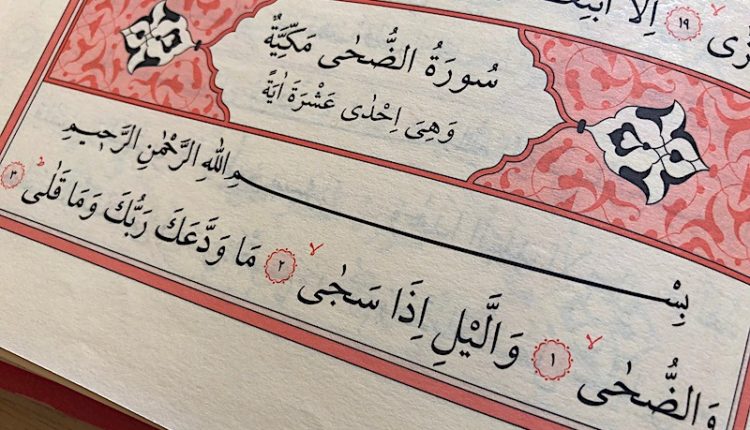 ـرٰى ١٩ لا اِلَّا ابْتِغَـ
سُورَةُ الضُّحٰى مَكِّيَّةٌ
وَهِىَ اِحْدٰى عَشْرَةَ اٰيَةً
بِسْمِ اللهِ الرَّحْمٰنِ الرَّحٖيمِ
وَالضُّحٰى ١ لا وَالَّيْلِ اِذَا سَجٰى ٢ لا مَا وَدَّعَكَ رَبُّكَ وَمَا قَلٰى ٣ ط